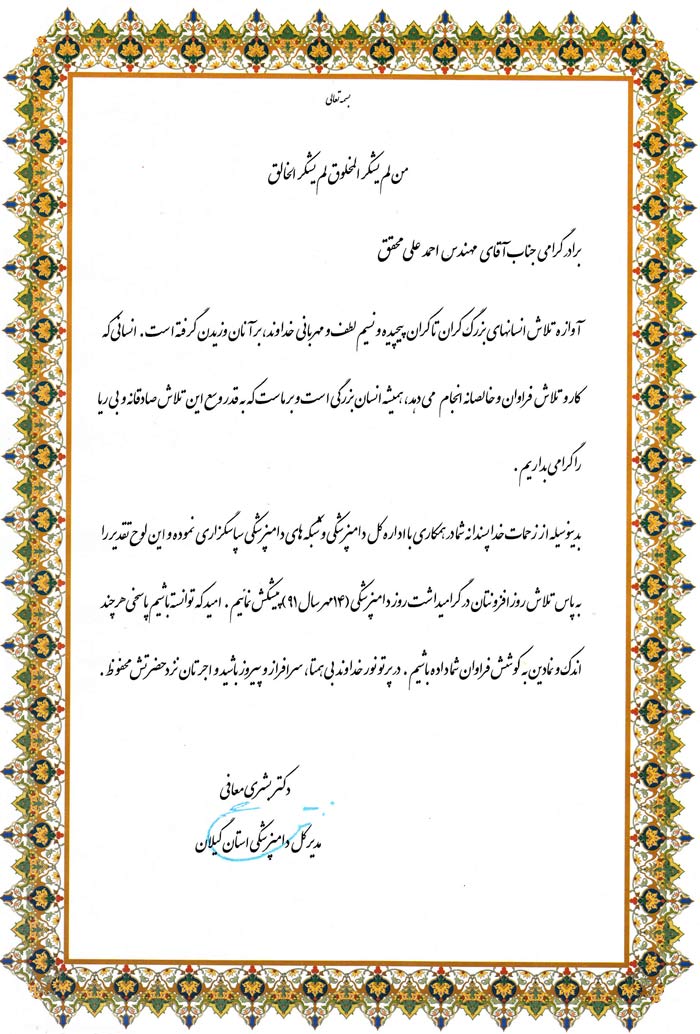 بسمه تعالی
من لم یشکر المخلوق لم یشکر الخالق
برادر گرامی جناب آقای مهندس احمد علی محقق
آوازه تلاش انسانهای بزرگ کران تا کران پیچیده و نسیم لطف و مهربانی خداوند، بر آنان وزیدن گرفته است. انسانی که
کار و تلاش فراوان و خالصانه انجام می دهد، همیشه انسان بزرگی است و بر ماست که به قدر وسع این تلاش صادقانه و بی ریا
را گرامی بداریم.
بدینوسیله از زحمات خداپسندانه شما در همکاری با اداره کل دامپزشکی و شبکه های دامپزشکی سپاسگزاری نموده و این لوح تقدیر را
به پاس تلاش روز افزونتان در گرامیداشت روز دامپزشکی (۱۴مهر سال ۹۱) پیشکش نمائیم. امید که توانسته باشیم پاسخی هر چند
اندک و نمادین به کوشش فراوان شما داده باشیم. در پرتو نور خداوند بی همتا، سرافراز و پیروز باشید و اجرتان نزد حضرتش محفوظ.
دکتر بشری معافی
مدیر کل دامپزشکی استان گیلان